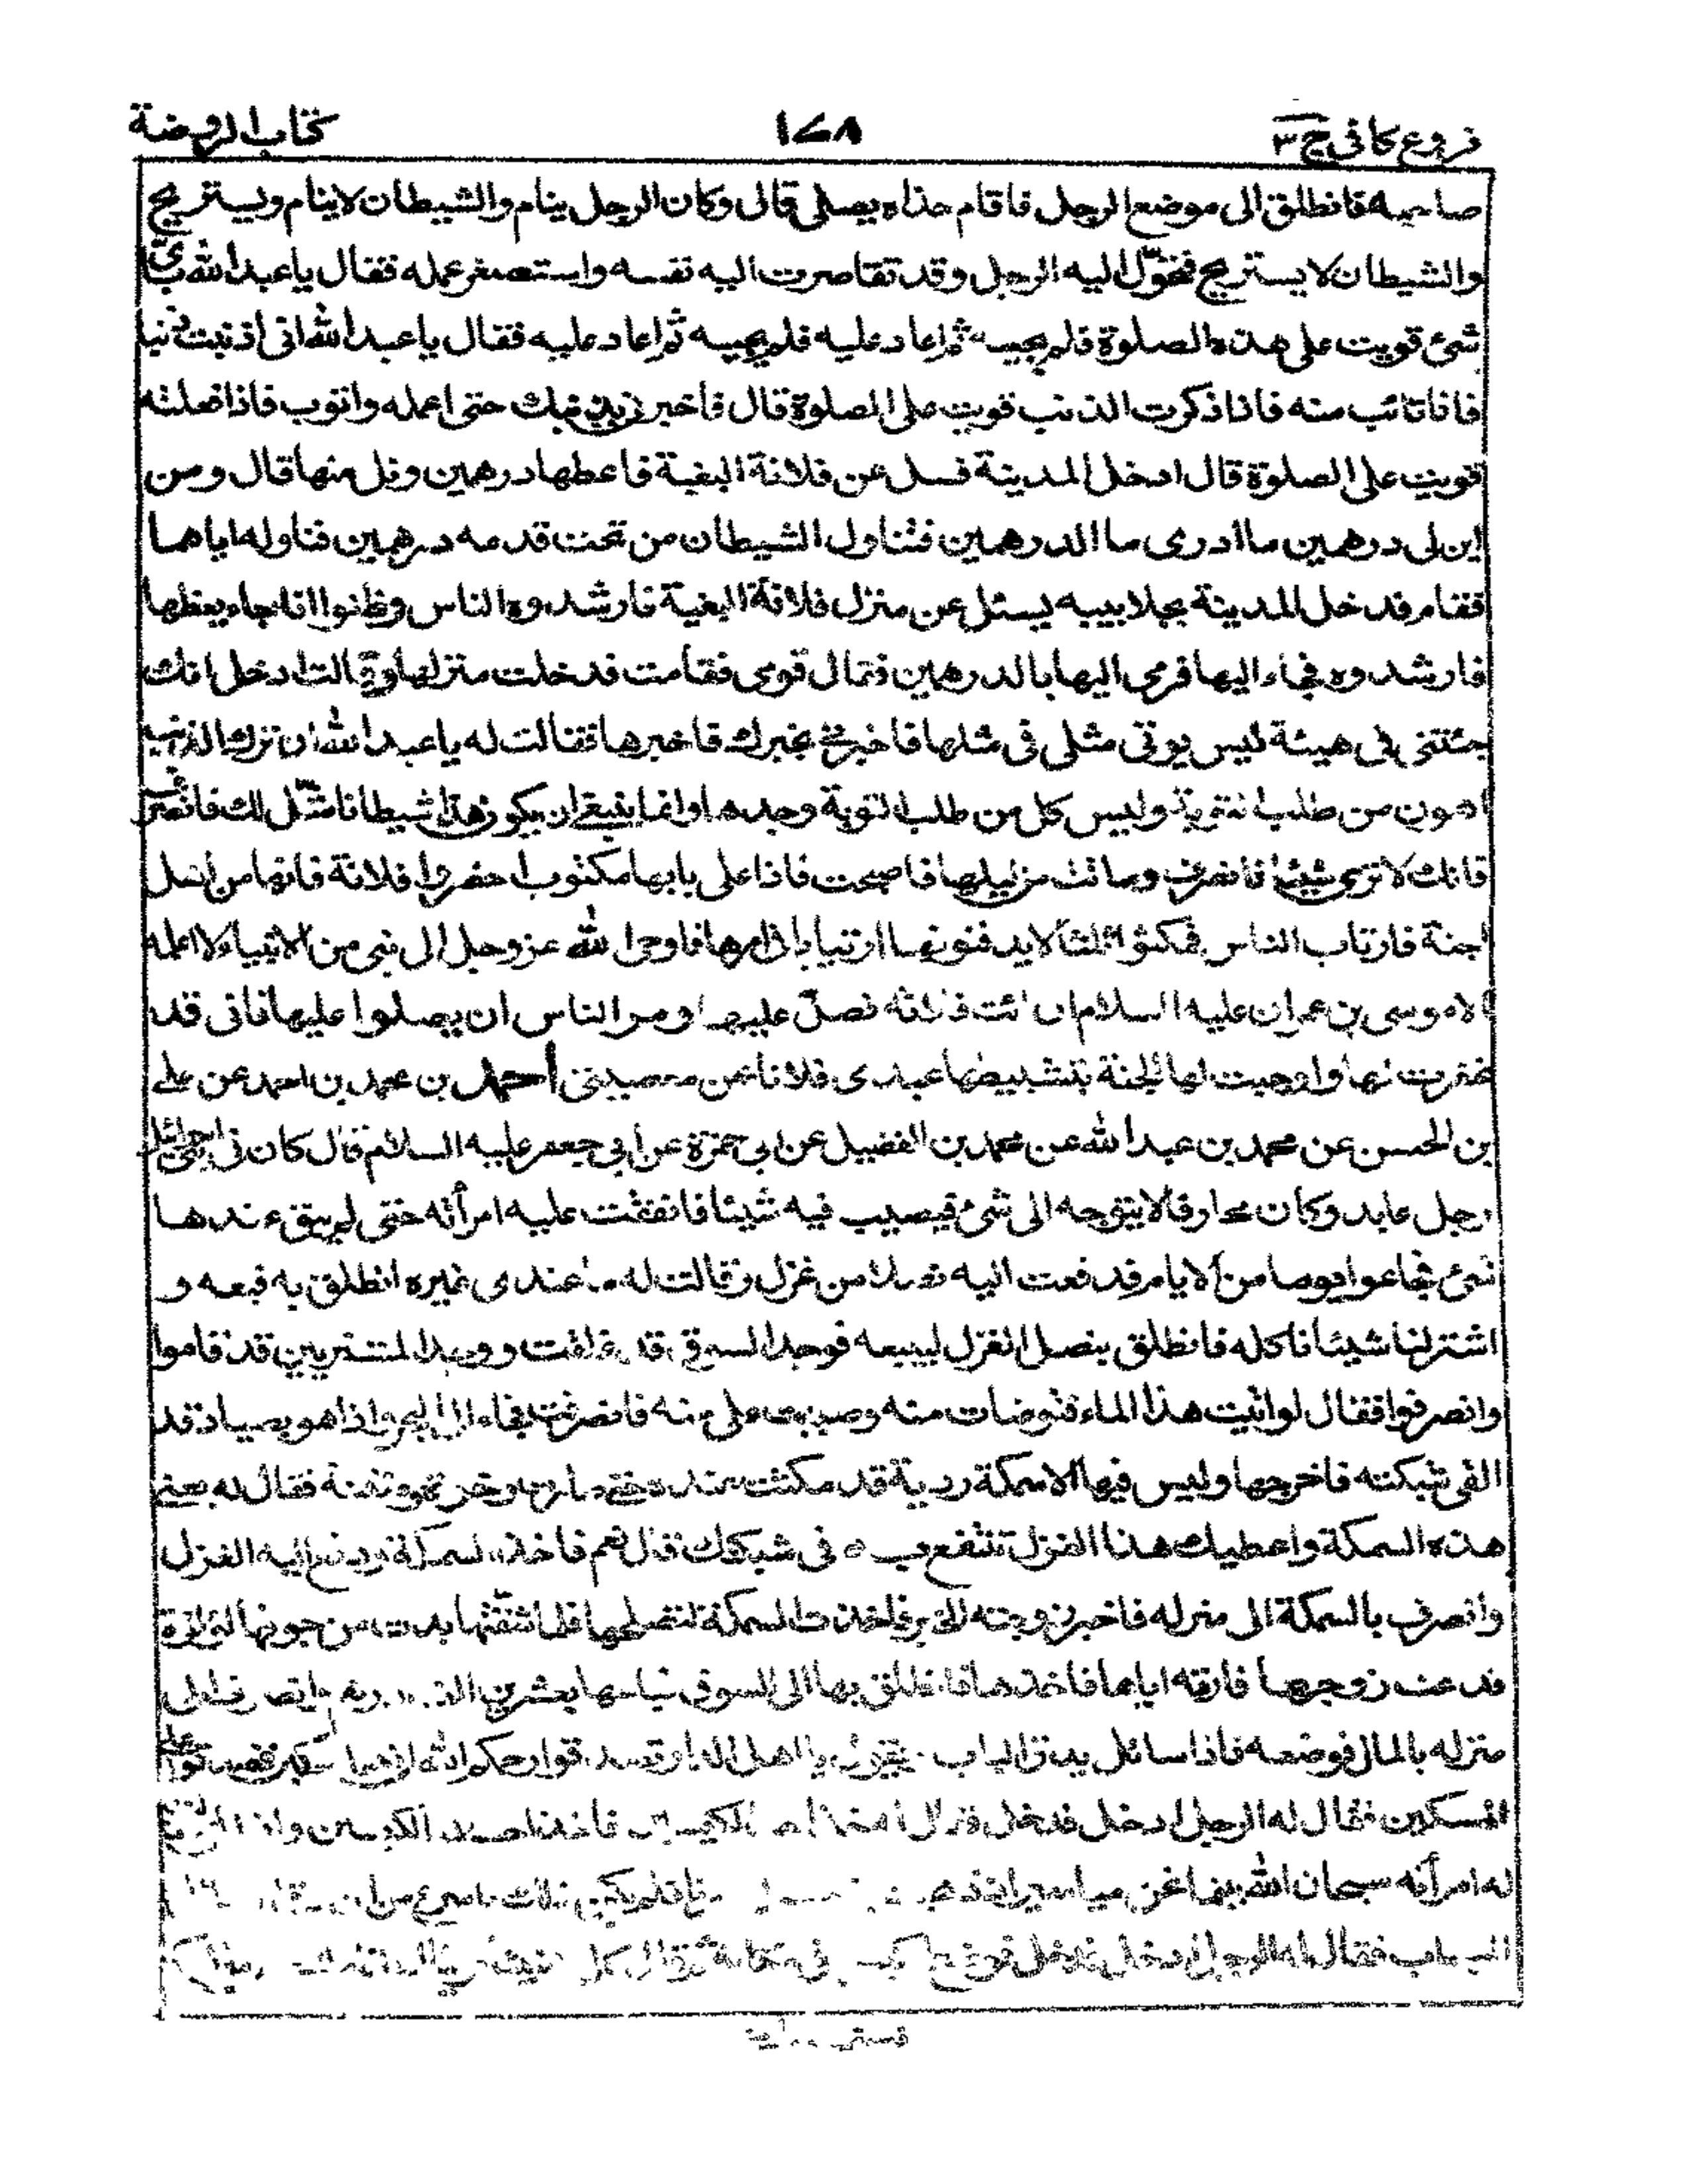 فروع كافى ج ٣ ١٧٨ كتاب الروضة
صاحبه فانطلق الى موضع الرجل فاقام حذاه يصلى قال وكان الرجل ينام والشيطان لاينام ويستريح
والشيطان لا يستريح فتحوّل اليه الرجل وقد تقاصرت اليه نفسه واستصغر عمله فقال يا عبدالله باىّ
شئ قويت على هذه الصلوة فلم يجبه ثم اعاد عليه فلم يجبه ثم اعاد عليه فقال يا عبدالله انى اذنبت ذنبا
فانا تائب منه فاذا ذكرت الذنب قويت على الصلوة قال فاخبرنى بذنبك حتى اعمله واتوب فاذا فعلته
قويت على الصلوة قال ادخل المدينة فسل عن فلانة البغية فاعطها درهمين ونل منها قال ومن
اين لى درهمين ما ادرى ما الدرهمين فتناول الشيطان من تحت قدمه درهمين فناوله اياهما
فقام فدخل المدينة بجلابيبه يسئل عن منزل فلانة البغية فارشدوه الناس وظنوا انه جاء يعظها
فارشدوه فجاء اليها فرمى اليها بالدرهمين وقال قومى فقامت فدخلت منزلها وقالت ادخل انك
جئتنى فى هيئة ليس يوتى مثلى فى مثلها فاخبرنى بخبرك فاخبرها فقالت له يا عبدالله ان ترك الذنب
اهون من طلب التوبة وليس كل من طلب التوبة وجدها وانما ينبغى ان يكون هذا شيطانا مثّل لك فانصرف
فانك لا ترى شيئا فانصرف وماتت من ليلها فاصبحت فاذا على بابها مكتوب احضروا فلانة فانها من اهل
الجنة فارتاب الناس فمكثوا ثلثا لا يدفنونها ارتيابا فى امرها فاوحى الله عزوجل الى نبى من الانبياء لا اعلمه
الا موسى بن عمران عليه السلام ان ائت فلانة فصلّ عليها ومر الناس ان يصلوا عليها فانى قد
غفرت لها واوجبت لها الجنة بتثبيطها عبدى فلانا عن معصيتى احمد بن محمد بن احمد عن على
بن الحسن عن محمد بن عبدالله عن محمد بن الفضيل عن ابى حمزة عن ابى جعفر عليه السلام قال كان فى بنى اسرائيل
رجل عابد وكان محارفا لا يتوجه الى شئ فيصيب فيه شيئا فانفقت عليه امرأته حتى لم يبق عندها
شئ فجاعوا يوما من الايام فدفعت اليه نصلا من غزل وقالت له ما عندى غيره انطلق به فبعه و
اشتر لنا شيئا ناكله فانطلق بنصل الغزل ليبيعه فوجد السوق قد غلقت ووجد المشتريين قد قاموا
وانصرفوا فقال لو اتيت هذا الماء فتوضات منه وصببت على منه فانصرفت فجاء الى البحر واذا هو بصياد قد
القى شبكته فاخرجها وليس فيها الا سمكة ردية قد مكثت عنده حتى صارت رخوة منتنة فقال له بعنى
هذه السمكة واعطيك هذا الغزل تنتفع به فى شبكتك قال نعم فاخذ السمكة ودفع اليه الغزل
وانصرف بالسمكة الى منزله فاخبر زوجته الخبر فاخذت السمكة لتصلحها فلما شقّتها بدت من جوفها لؤلؤة
فدعت زوجها فارته اياها فاخذها فانطلق بها الى السوق فباعها بعشرين الف درهم وانصرف الى
منزله بالمال فوضعه فاذا سائل يدق الباب ويقول يا اهل الدار تصدقوا رحمكم الله على
المسكين فقال له الرجل ادخل فدخل فقال له خذ احد الكيسين فاخذ احد الكيسين وانطلق
له امرأته سبحان الله بينما نحن مياسير اذ ذهبت فلم يكن ذلك باسرع من ان
الباب فقال له الرجل ادخل فدخل فوضع الكيس فى مكانه ثم قال كل